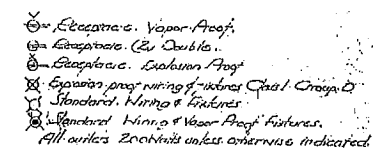 = Receptacle. Vapor Proof.
= Receptacle. (2) Double.
= Receptacle. Explosion Proof
Explosion proof wiring & fixtures Class I Group D
Standard Wiring & Fixtures
Standard Wiring & Vapor Proof Fixtures.
All outlets 200 Watts unless otherwise indicated